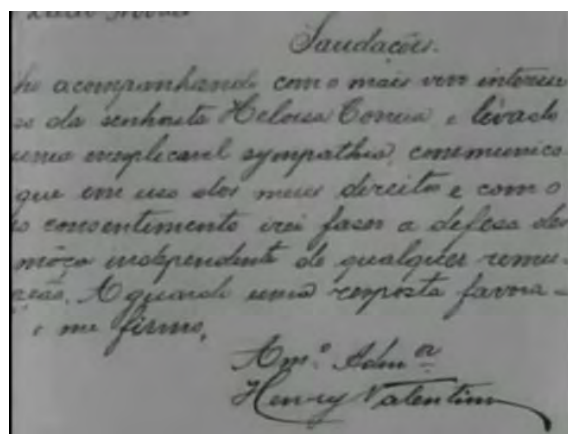 Saudações.
ho acompanhando com o mais vivo interes
so da senhorita Heloisa Correa, e levado
uma inexplicavel sympathia, communico
que em uso dos meus direitos e com o
consentimento irei fazer a defesa des
môça independente de qualquer remu-
ração. Aguardo uma resposta favora-
e me firmo,
Amº. Admºr
Henry Valentim